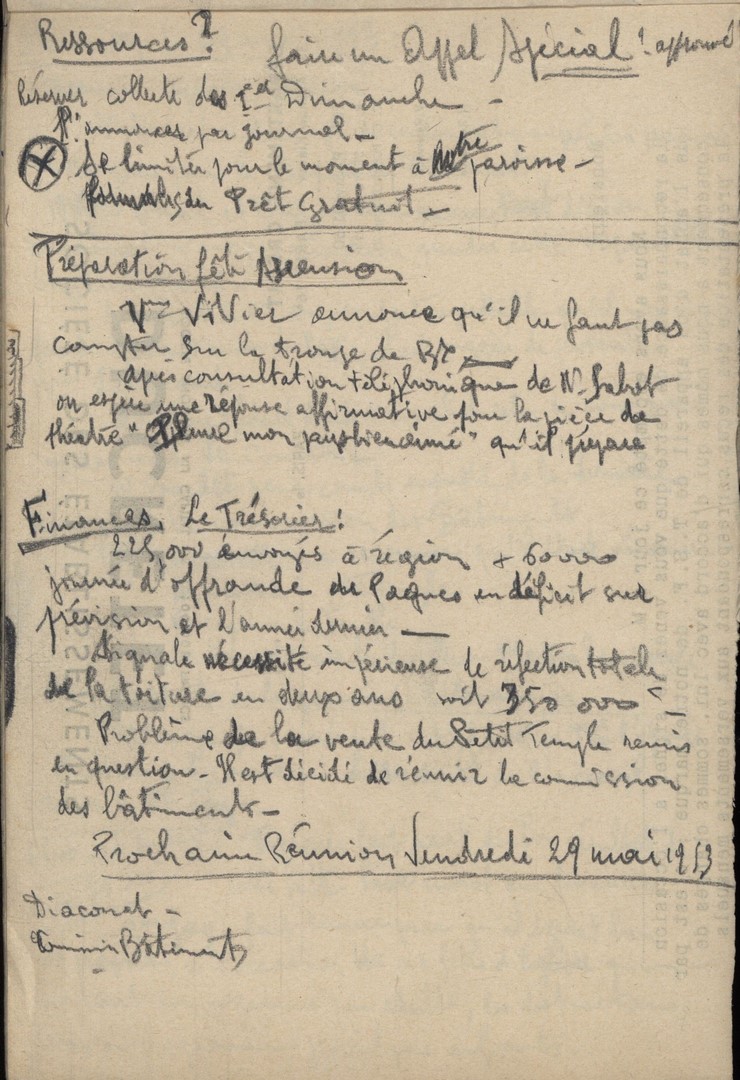 Ressources? faire un Appel Spécial! approuvé
Réserver collecte des 1er Dimanche -
annonces par journal -
Se limiter pour le moment à notre paroisse -
Prêt Gratuit -
Préparation fête Ascension
Vivier annonce qu'il ne faut pas
compter sur la troupe de
après consultation téléphonique de Mr
on espère une réponse affirmative pour la pièce de
théâtre " mon " qu'il prépare
Finances, Le Trésorier:
225,000 envoyés à région + 60000
journée d'offrande de Paques en déficit sur
prévision et l'année dernier —
Signale nécessité impérieuse de réfection totale
de la toiture en deux ans soit 350 000 -
Problème de la vente du Petit Temple remis
en question - Il est décidé de réunir la commission
des bâtiments -
Prochaine Réunion Vendredi 29 mai 1953
Diaconat -
Bâtiments